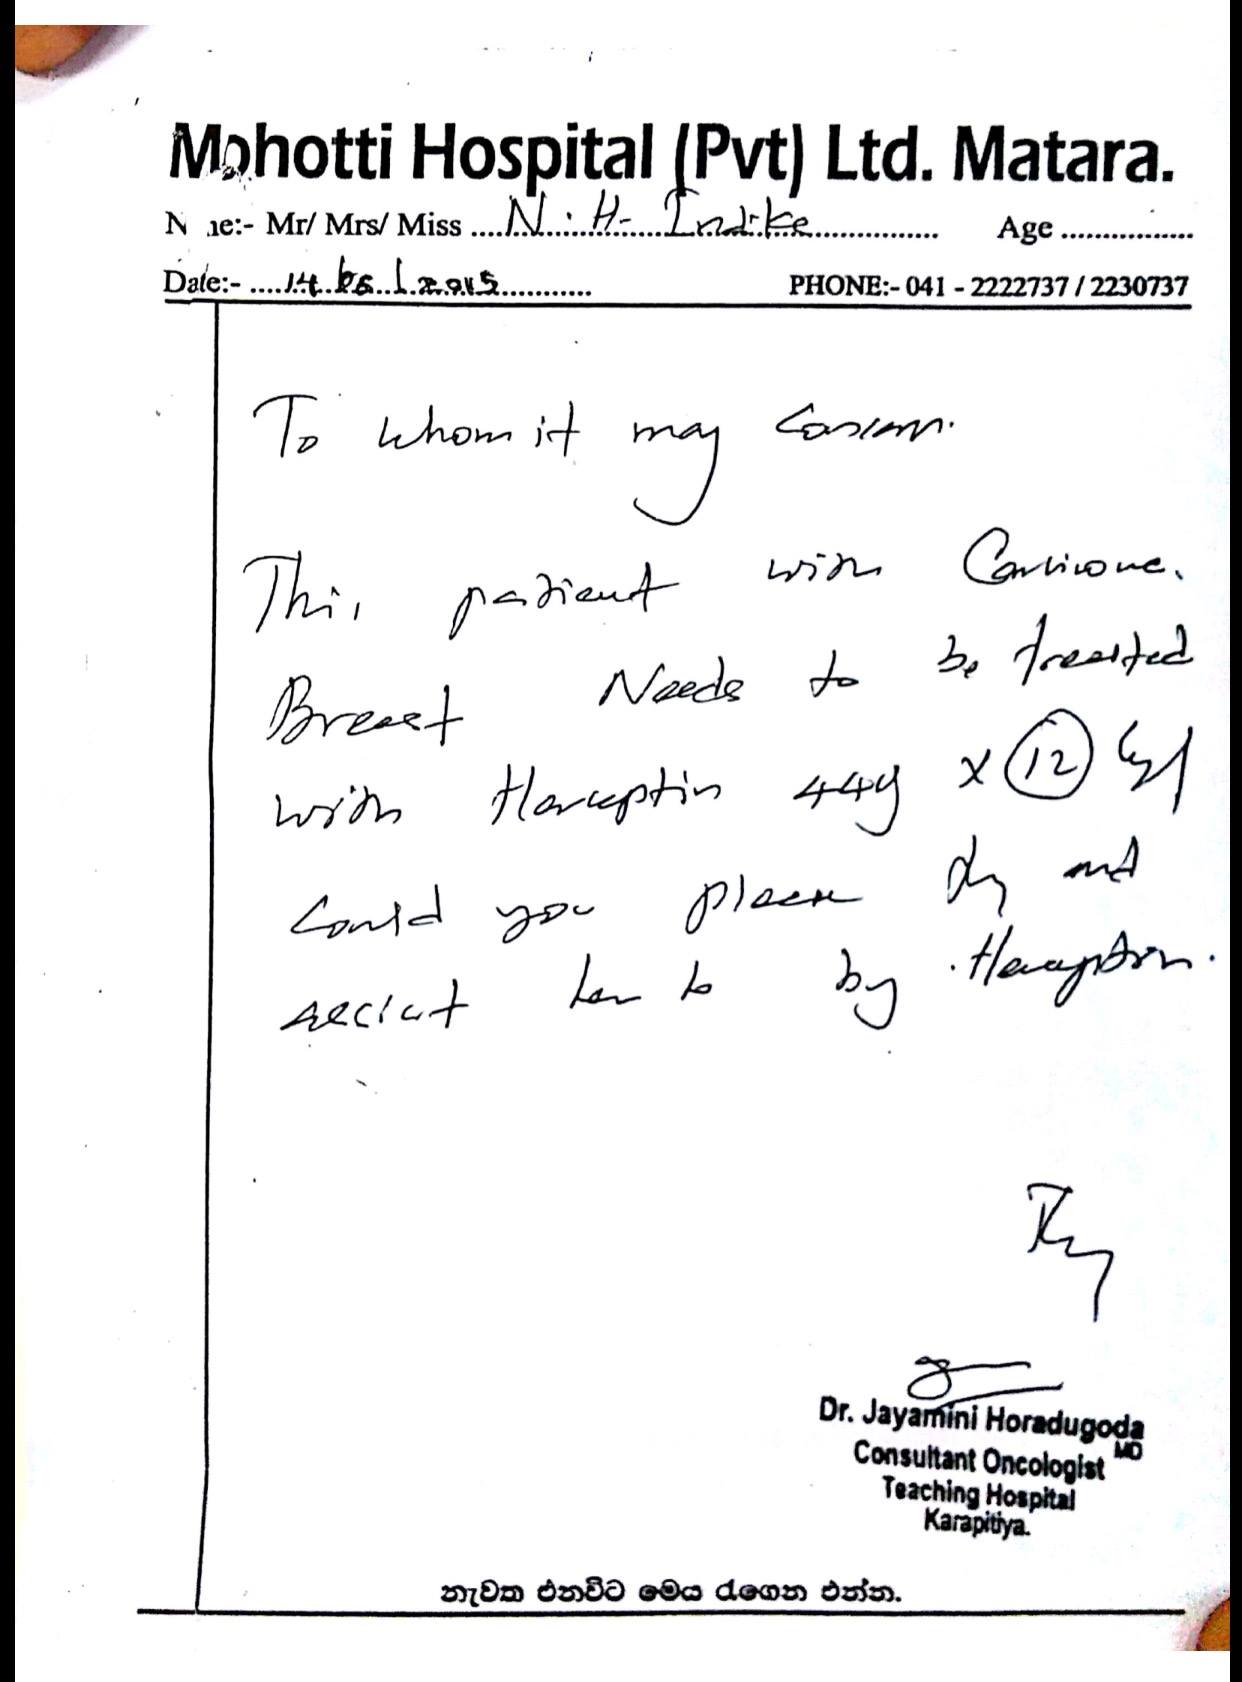 Mohotti Hospital (Pvt) Ltd. Matara.
N me:- Mr/ Mrs/ Miss ....N. H. Indike.... Age ................
Date:- ....14. ....2015............ PHONE:- 041 - 2222737 / 2230737
To whom it may concern.
This patient with Carcinoma
Breast Needs to be treated
with Herceptin 44 x 12
Could you please and
assist her to by Herceptin.
Dr. Jayamini Horadugoda
MD
Consultant Oncologist
Teaching Hospital
Karapitiya.
නැවත එනවිට මෙය රැගෙන එන්න.